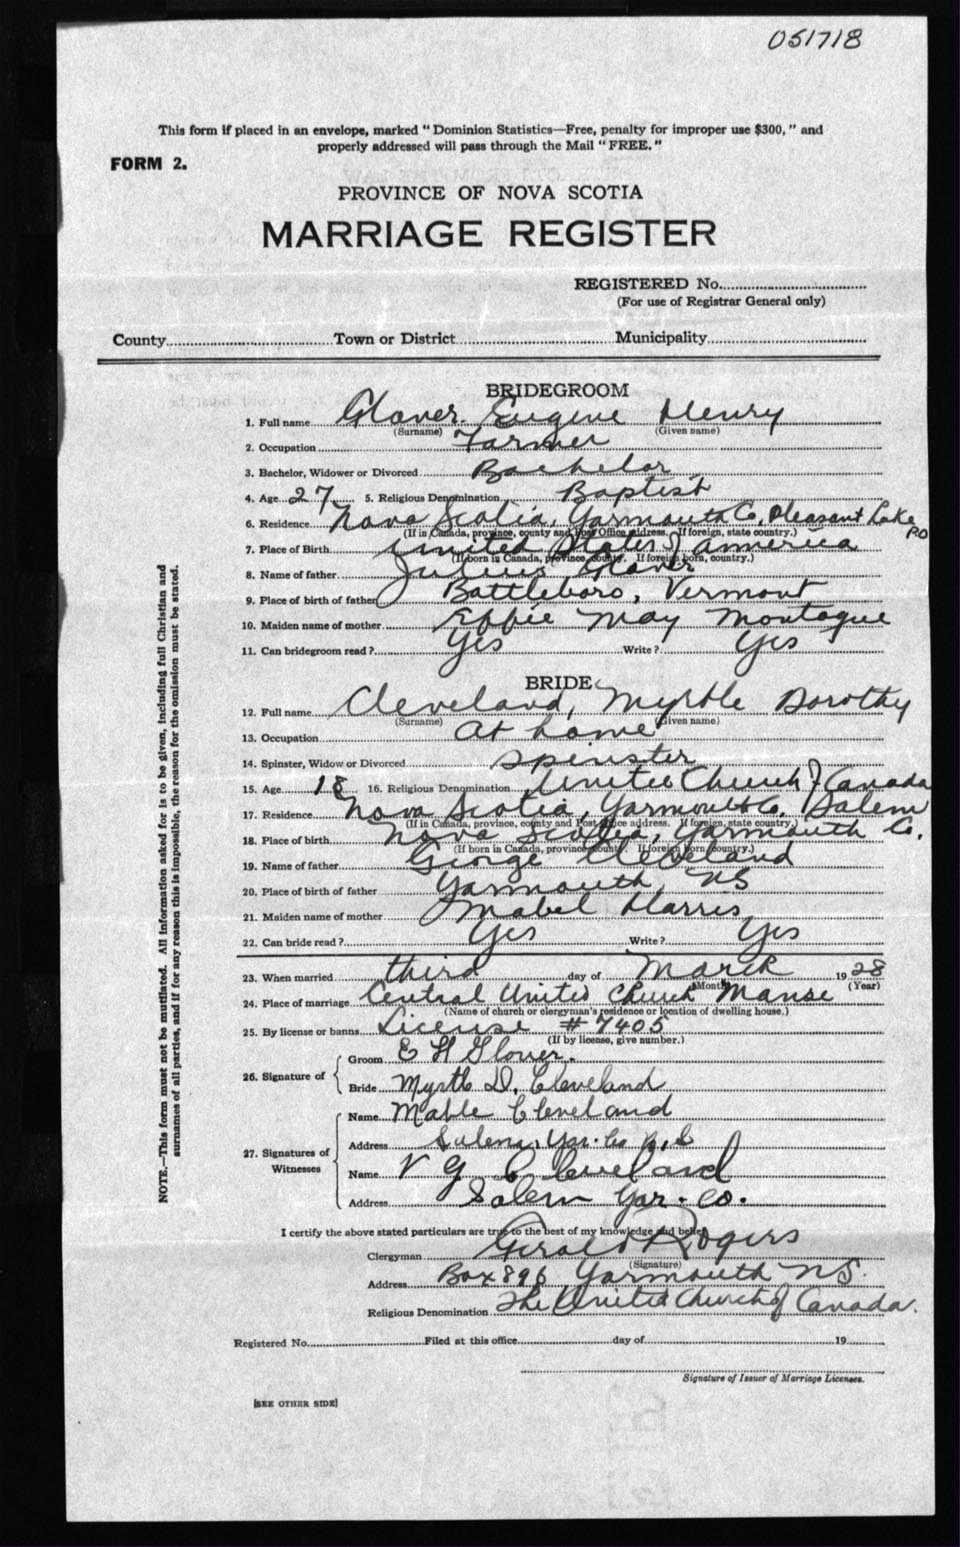 051718
This form if placed in an envelope, marked "Dominion Statistics—Free, penalty for improper use $300," and
properly addressed will pass through the Mail "FREE."
FORM 2.
PROVINCE OF NOVA SCOTIA
MARRIAGE REGISTER
REGISTERED No.
(For use of Registrar General only)
County Town or District Municipality
BRIDEGROOM
1. Full name Glover. Eugene Henry
(Surname) (Given name)
2. Occupation Farmer
3. Bachelor, Widower or Divorced Bachelor
4. Age 27 5. Religious Denomination Baptist
6. Residence Nova Scotia, Yarmouth Co, Pleasant Lake PO
(If in Canada, province, county and Post Office address. If foreign, state country.)
7. Place of Birth United States of America
(If born in Canada, province, county. If foreign born, country.)
8. Name of father Julius Glover
9. Place of birth of father Battleboro, Vermont
10. Maiden name of mother Effie May Montague
11. Can bridegroom read? Yes Write? Yes
BRIDE
12. Full name Cleveland, Myrtle Dorothy
(Surname) (Given name)
13. Occupation At home
14. Spinster, Widow or Divorced Spinster
15. Age 18 16. Religious Denomination United Church of Canada
17. Residence Nova Scotia, Yarmouth Co, Salem
(If in Canada, province, county and Post Office address. If foreign, state country.)
18. Place of birth Nova Scotia, Yarmouth Co.
(If born in Canada, province county. If foreign born, country.)
19. Name of father George Cleveland
20. Place of birth of father Yarmouth, NS
21. Maiden name of mother Mabel Harris
22. Can bride read? Yes Write? Yes
23. When married third day of March 1928
(Month) (Year)
24. Place of marriage Central United Church Manse
(Name of church or clergyman's residence or location of dwelling house.)
25. By license or banns License # 7405
(If by license, give number.)
26. Signature of
Groom E H Glover.
Bride Myrtle D. Cleveland
27. Signatures of Witnesses
Name Mable Cleveland
Address Salem, Yar. Co N,S
Name V G Cleveland
Address Salem Yar. Co.
I certify the above stated particulars are true to the best of my knowledge and belief.
Clergyman Gerald Rogers
(Signature)
Address Box 896 Yarmouth NS.
Religious Denomination The United Church of Canada.
Registered No. Filed at this office day of 19
Signature of Issuer of Marriage Licenses.
[SEE OTHER SIDE]
NOTE.—This form must not be mutilated. All information asked for is to be given, including full Christian and
surnames of all parties, and if for any reason this is impossible, the reason for the omission must be stated.